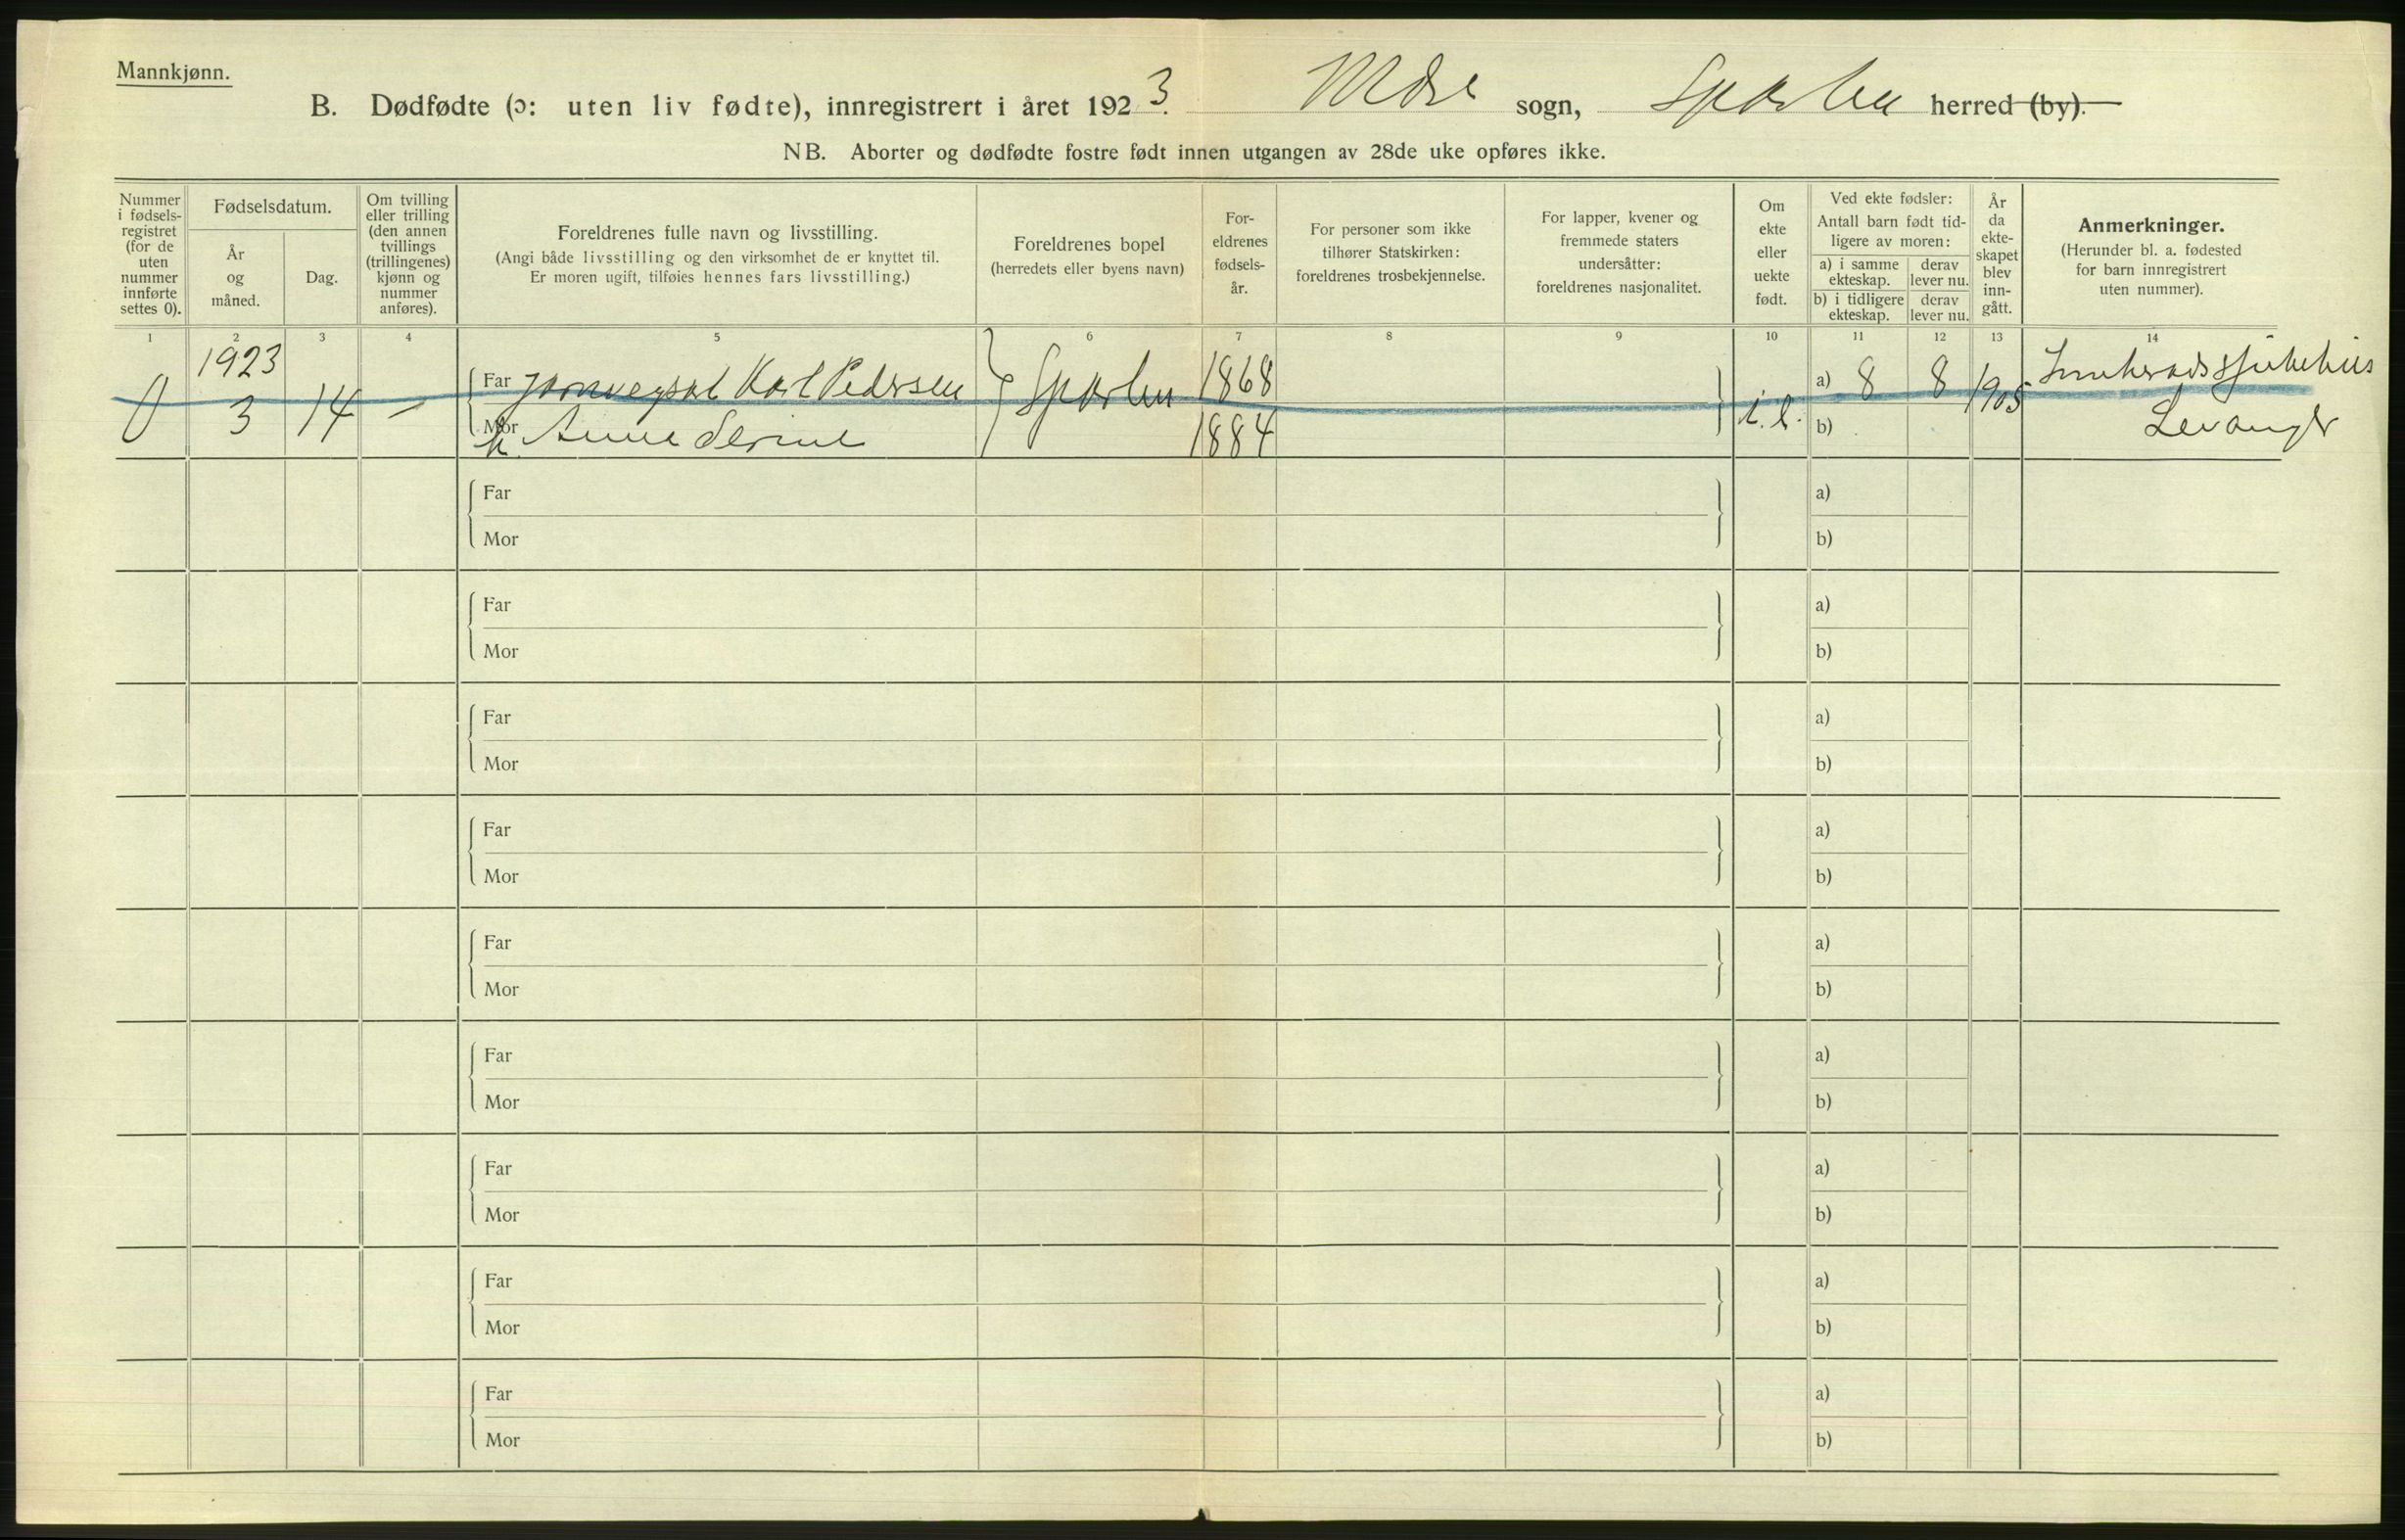 Mannkjønn.
B. Dødfødte (ɔ: uten liv fødte), innregistrert i året 1923. Mære sogn, Sparbu herred (by).
NB. Aborter og dødfødte fostre født innen utgangen av 28de uke opføres ikke.
Nummer
i fødsels-
registret
(for de
uten
nummer
innførte
settes 0).
Fødselsdatum.
År
og
måned.
Dag.
Om tvilling
eller trilling
(den annen
tvillings
(trillingenes)
kjønn og
nummer
anføres).
Foreldrenes fulle navn og livsstilling.
(Angi både livsstilling og den virksomhet de er knyttet til.
Er moren ugift, tilføies hennes fars livsstilling.)
Foreldrenes bopel
(herredets eller byens navn)
For-
eldrenes
fødsels-
år.
For personer som ikke
tilhører Statskirken:
foreldrenes trosbekjennelse.
For lapper, kvener og
fremmede staters
undersåtter:
foreldrenes nasjonalitet.
Om
ekte
eller
uekte
født.
Ved ekte fødsler:
Antall barn født tid-
ligere av moren:
a) i samme
ekteskap.
derav
lever nu.
b) i tidligere
ekteskap.
derav
lever nu.
År
da
ekte-
skapet
blev
inn-
gått.
Anmerkninger.
(Herunder bl. a. fødested
for barn innregistrert
uten nummer).
1 2 3 4 5 6 7 8 9 10 11 12 13 14
1923
0 3 14 —
Far Karl Pedersen Sparbu 1868
Mor Anna Serine 1884
a) 8 8 1905
b)
Levanger
Far a)
Mor b)
Far a)
Mor b)
Far a)
Mor b)
Far a)
Mor b)
Far a)
Mor b)
Far a)
Mor b)
Far a)
Mor b)
Far a)
Mor b)
Far a)
Mor b)